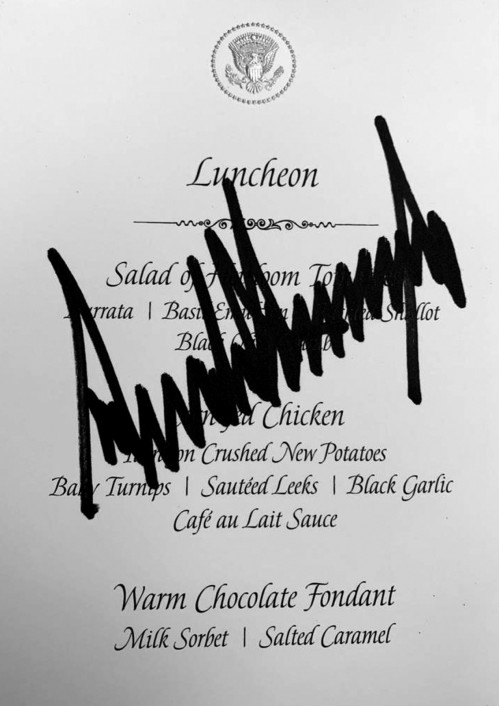 Luncheon
Salad of Heirloom
Burrata | Basil Emulsion Shallot
Black
Chicken
Crushed New Potatoes
Baby Turnips | Sautéed Leeks | Black Garlic
Café au Lait Sauce
Warm Chocolate Fondant
Milk Sorbet | Salted Caramel